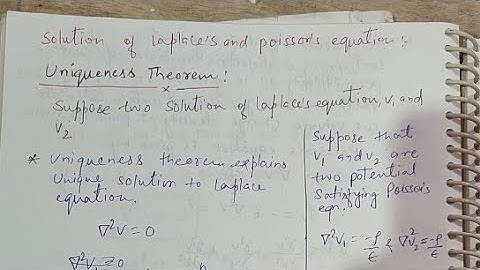 Solution of Laplace's and poisson's equation:
Uniqueness Theorem:
Suppose two solution of Laplace's equation, V₁ and
V₂
* Uniqueness theorem explains
Unique solution to Laplace
equation.
∇²V = 0
∇²V₁ = 0
Suppose that
V₁ and V₂ are
two potential
Satisfying Poisson's
eqn.
∇²V₁ = -ρ/ε & ∇²V₂ = -ρ/ε